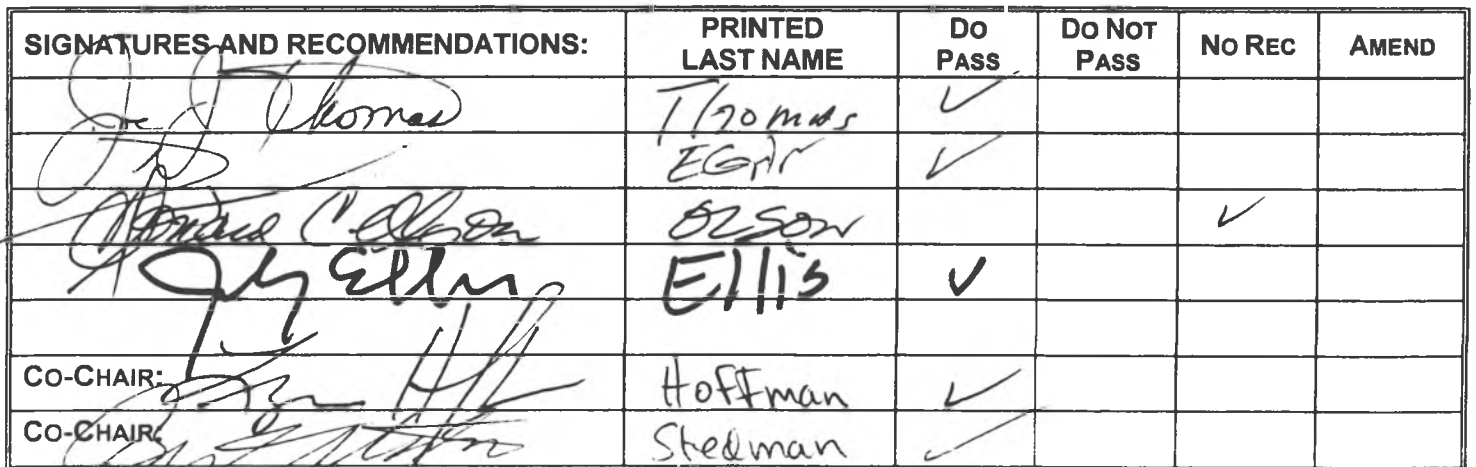 SIGNATURES AND RECOMMENDATIONS: PRINTED LAST NAME DO PASS DO NOT PASS NO REC AMEND
Joe J Thomas Thomas ✓
EGAN ✓
Donald C Olson OLSON ✓
Johnny Ellis Ellis ✓
CO-CHAIR: Hoffman ✓
CO-CHAIR: Stedman ✓